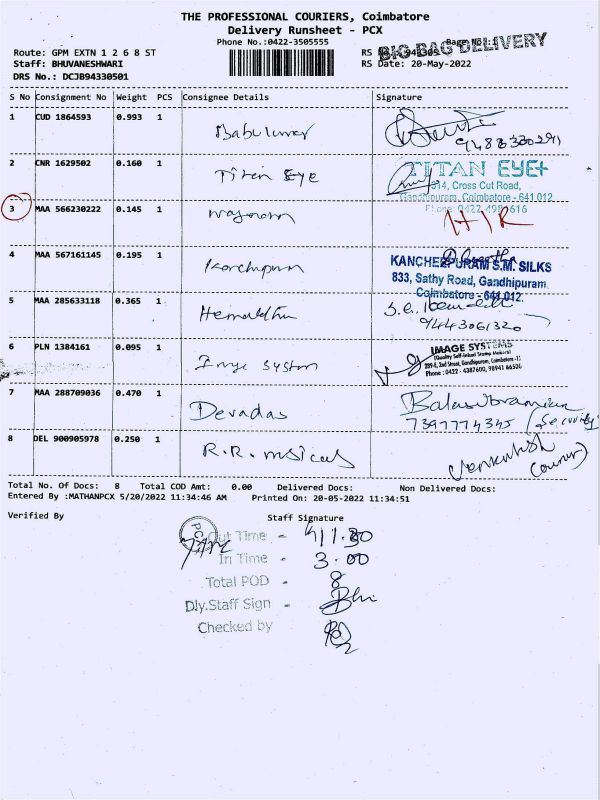 THE PROFESSIONAL COURIERS, Coimbatore
Delivery Runsheet - PCX
Phone No.:0422-3505555
Page No. 1
BIG BAG DELIVERY
Route: GPM EXTN 1 2 6 8 ST
RS
Staff: BHUVANESHWARI
RS Date: 20-May-2022
DRS No.: DCJB94330501
S No Consignment No Weight PCS Consignee Details Signature
1 CUD 1864593 0.993 1 Babu kumar
2 CNR 1629502 0.160 1 Titan Eye TITAN EYE+
314, Cross Cut Road,
Gandhipuram, Coimbatore - 641 012
3 MAA 566230222 0.145 1 HIR
4 MAA 567161145 0.195 1 KANCHEEPURAM S.M. SILKS
833, Sathy Road, Gandhipuram
Coimbatore - 641 012
5 MAA 285633118 0.365 1
9443061320
6 PLN 1384161 0.095 1 system IMAGE SYSTEMS
(Quality Self-Inked Stamp Makers)
Phone : 0422 - 4387600, 98941 66506
7 MAA 288709036 0.470 1 Devadas Balasubramian
7397774345 (Security)
8 DEL 900905978 0.250 1 R.R. musicals Venkatesh
(Courier)
Total No. Of Docs: 8 Total COD Amt: 0.00 Delivered Docs: Non Delivered Docs:
Entered By :MATHANPCX 5/20/2022 11:34:46 AM Printed On: 20-05-2022 11:34:51
Verified By Staff Signature
Out Time - 11.30
In Time - 3.00
Total POD - 8
Dly.Staff Sign - Bhi
Checked by